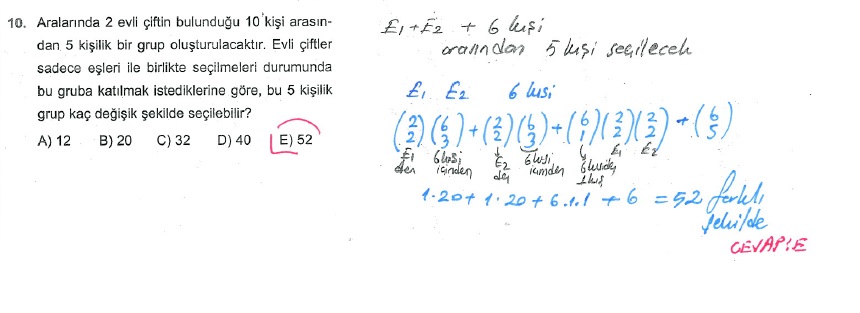 10. Aralarında 2 evli çiftin bulunduğu 10 kişi arasın-
dan 5 kişilik bir grup oluşturulacaktır. Evli çiftler
sadece eşleri ile birlikte seçilmeleri durumunda
bu gruba katılmak istediklerine göre, bu 5 kişilik
grup kaç değişik şekilde seçilebilir?
A) 12 B) 20 C) 32 D) 40 E) 52
E₁ + E₂ + 6 kişi
arasından 5 kişi seçilecek
E₁ E₂ 6 kişi
(2 2)(6 3) + (2 2)(6 3) + (6 1)(2 2)(2 2) + (6 5)
E₁ den 6 kişi içinden E₂ den 6 kişi içinden 6 kişiden 1 kişi E₁ E₂
1.20 + 1.20 + 6.1.1 + 6 = 52 farklı
şekilde
CEVAP:E